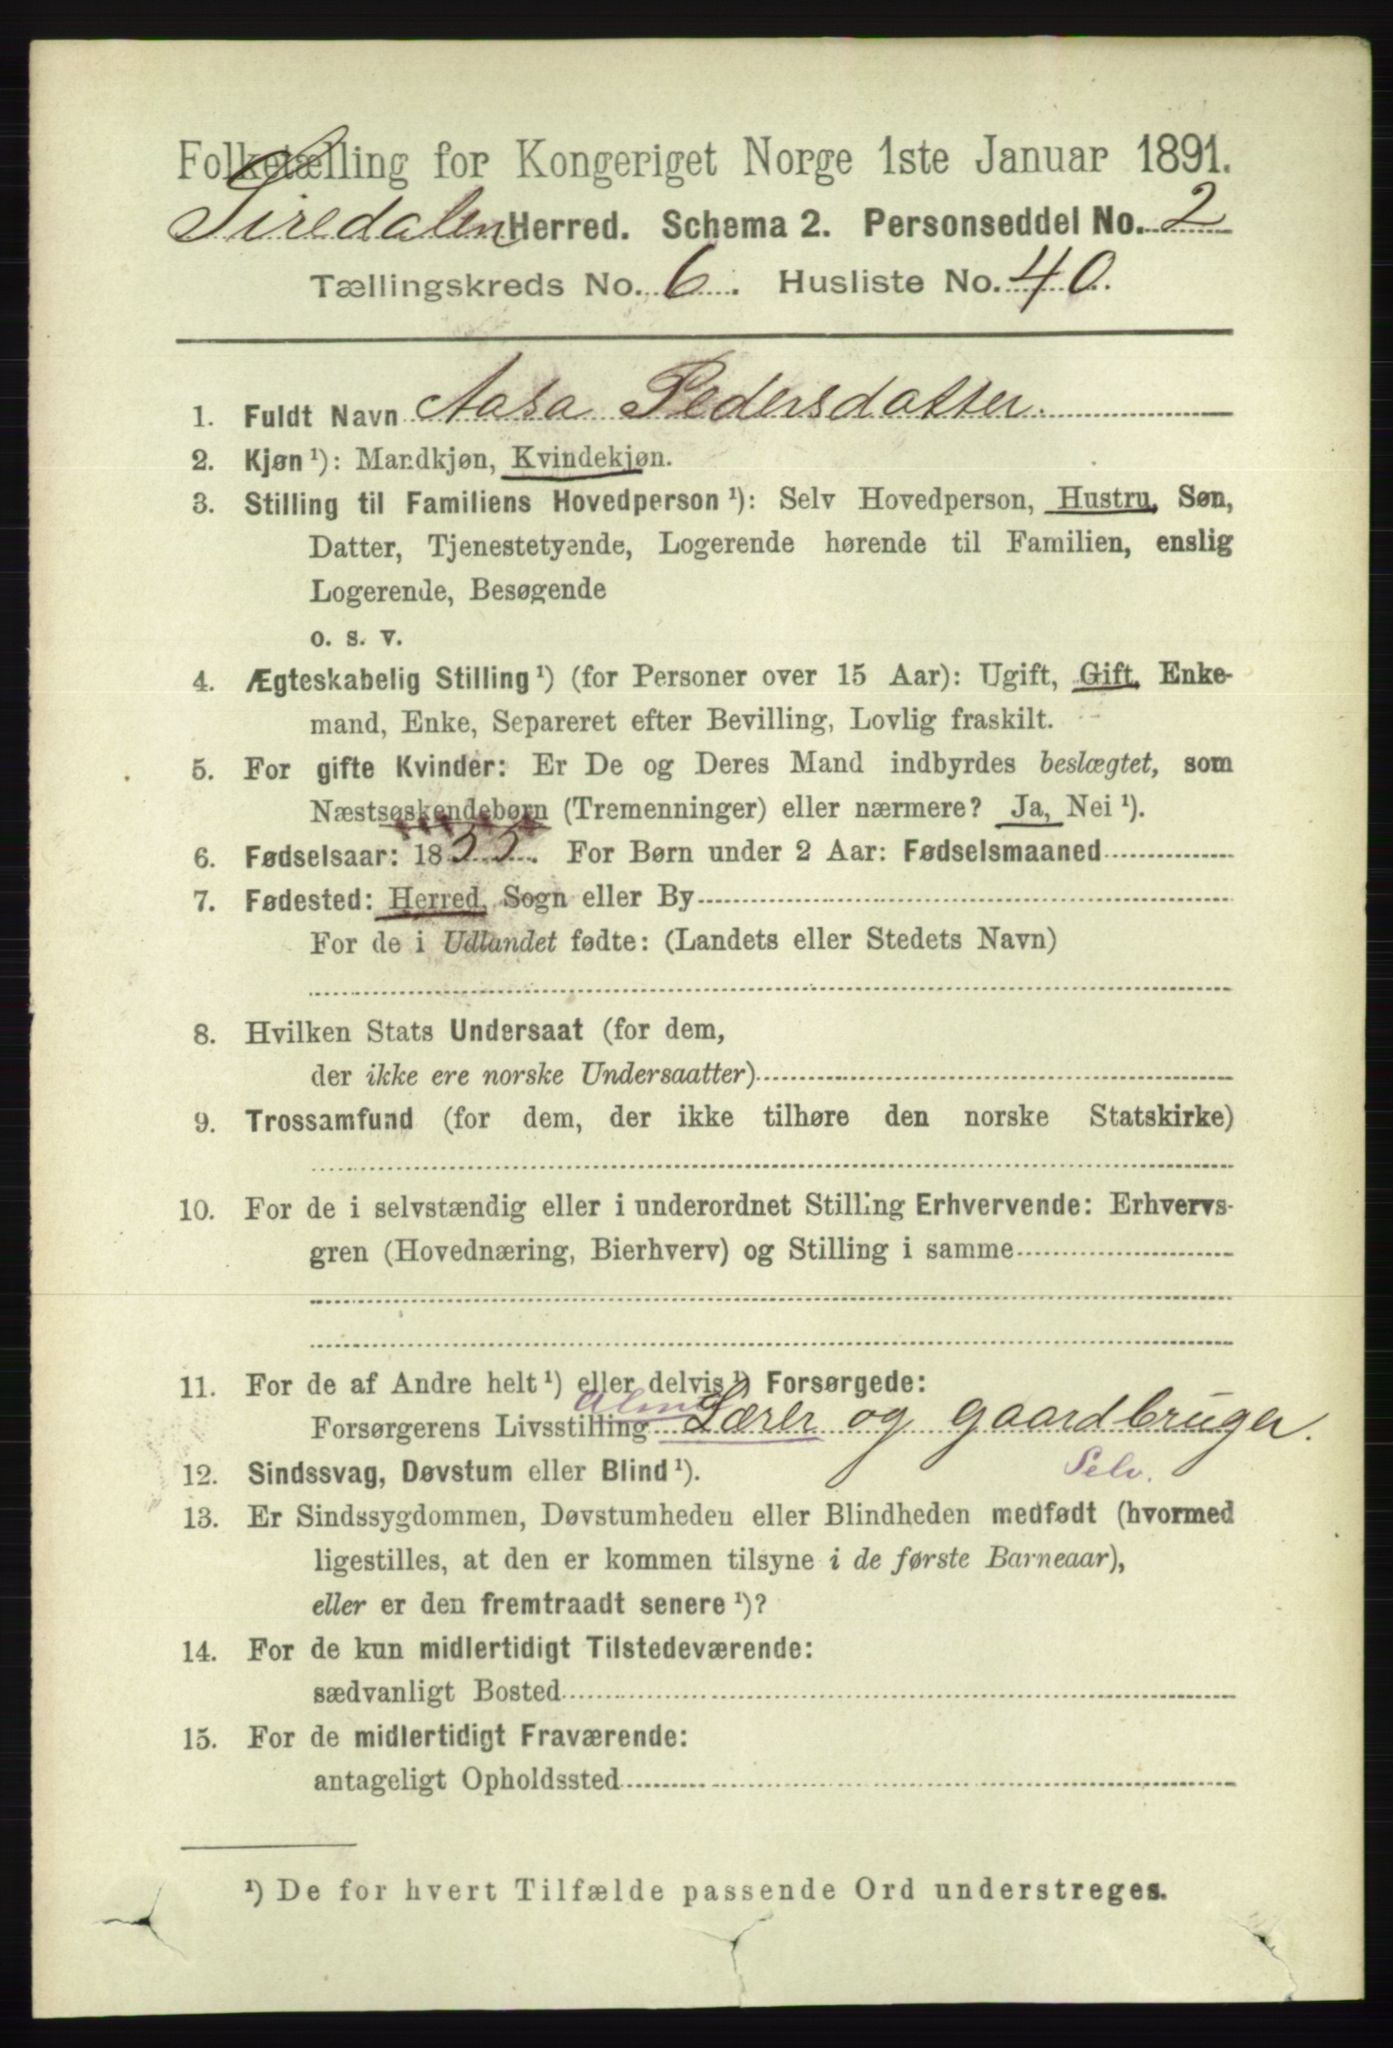 Folketælling for Kongeriget Norge 1ste Januar 1891.
Siredalen Herred. Schema 2. Personseddel No. 2
Tællingskreds No. 6. Husliste No. 40.
1. Fuldt Navn Aasa Pedersdatter.
2. Kjøn ¹): Mandkjøn, Kvindekjøn.
3. Stilling til Familiens Hovedperson ¹): Selv Hovedperson, Hustru, Søn,
Datter, Tjenestetyende, Logerende hørende til Familien, enslig
Logerende, Besøgende
o. s. v.
4. Ægteskabelig Stilling ¹) (for Personer over 15 Aar): Ugift, Gift, Enke-
mand, Enke, Separeret efter Bevilling, Lovlig fraskilt.
5. For gifte Kvinder: Er De og Deres Mand indbyrdes beslægtet, som
Næstsøskendebørn (Tremenninger) eller nærmere? Ja, Nei ¹).
6. Fødselsaar: 1855. For Børn under 2 Aar: Fødselsmaaned
7. Fødested: Herred, Sogn eller By
For de i Udlandet fødte: (Landets eller Stedets Navn)
8. Hvilken Stats Undersaat (for dem,
der ikke ere norske Undersaatter)
9. Trossamfund (for dem, der ikke tilhøre den norske Statskirke)
10. For de i selvstændig eller i underordnet Stilling Erhvervende: Erhvervs-
gren (Hovednæring, Bierhverv) og Stilling i samme
11. For de af Andre helt ¹) eller delvis ¹) Forsørgede:
Forsørgerens Livsstilling Lærer og gaardbruger.
12. Sindssvag, Døvstum eller Blind ¹). Selv.
13. Er Sindssygdommen, Døvstumheden eller Blindheden medfødt (hvormed
ligestilles, at den er kommen tilsyne i de første Barneaar),
eller er den fremtraadt senere ¹)?
14. For de kun midlertidigt Tilstedeværende:
sædvanligt Bosted
15. For de midlertidigt Fraværende:
antageligt Opholdssted
¹) De for hvert Tilfælde passende Ord understreges.